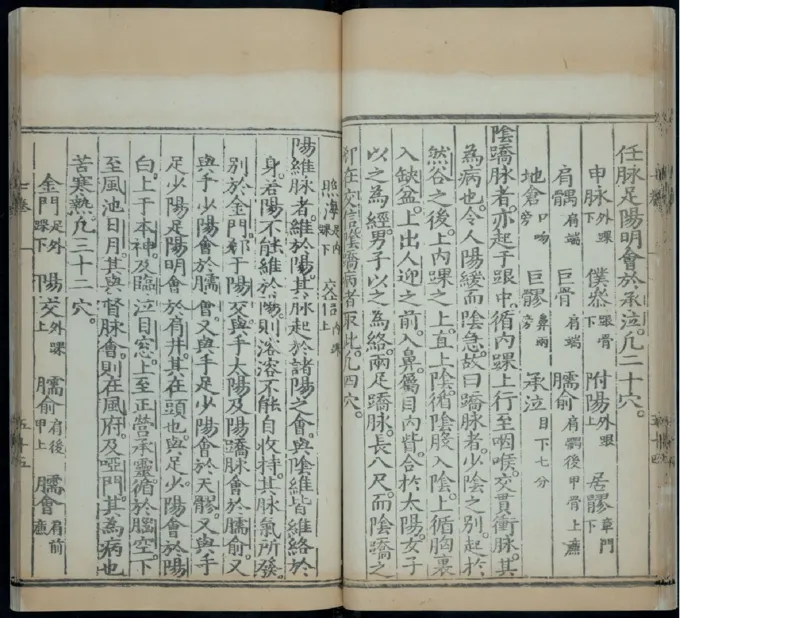 任脉足陽明會於承泣。凡二十穴。
申脉外踝下 僕㕘跟骨下 附陽外踝上 居髎章門下
肩髃肩端 巨骨肩端 臑俞肩髃後甲骨上廉
地倉口吻旁 巨髎鼻兩旁 承泣目下七分
陰蹻脉者。亦起于跟中。循内踝上行至咽喉。交貫衝脉。其
為病也。令人陽緩而陰急。故曰蹻脉者。少陰之别。起於
然谷之後。上内踝之上。直上陰。循陰股入陰。上循胸裏
入缺盆。上出人迎之前。入鼻。屬目内眥。合於太陽。女子
以之為經。男子以之為絡。兩足蹻脉。長八尺。而陰蹻之
郄在交信。陰蹻病者取此。凡四穴。
照海足内踝下 交信内踝上
陽維脉者。維於陽。其脉起於諸陽之會。與陰維皆維絡於
身。若陽不能維於陽。則溶溶不能自收持。其脉氣所發。
别於金門。郄于陽交。與手太陽及陽蹻脉會於臑俞。又
與手少陽會於臑會。又與手足少陽會於天髎。又與手
足少陽足陽明會於肩井。其在頭也。與足少陽會於陽
白。上于本神。及臨泣目窓。上至正營承靈。循於腦空。下
至風池日月。其與督脉會。則在風府。及啞門。其為病也
苦寒熱。凡三十二穴。
金門足外踝下 陽交外踝上 臑俞肩後甲上 臑會肩前廉